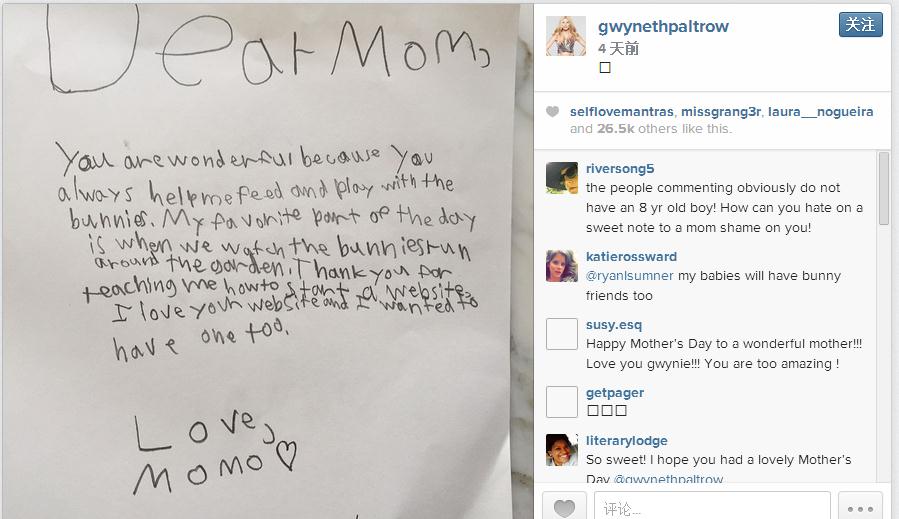 Dear Mom,
You are wonderful because you
always help me feed and play with the
bunnies. My favorite part of the day
is when we watch the bunnies run
around the garden. Thank you for
teaching me how to start a website.
I love your website and I wanted to
have one too.
Love,
MOMO♡
gwynethpaltrow
关注
4 天前
selflovemantras, missgrang3r, laura__nogueira
and 26.5k others like this.
riversong5
the people commenting obviously do not
have an 8 yr old boy! How can you hate on a
sweet note to a mom shame on you!
katierossward
@ryanlsumner my babies will have bunny
friends too
susy.esq
Happy Mother's Day to a wonderful mother!!!
Love you gwynie!!! You are too amazing !
getpager
literarylodge
So sweet! I hope you had a lovely Mother's
Day @gwynethpaltrow
评论...